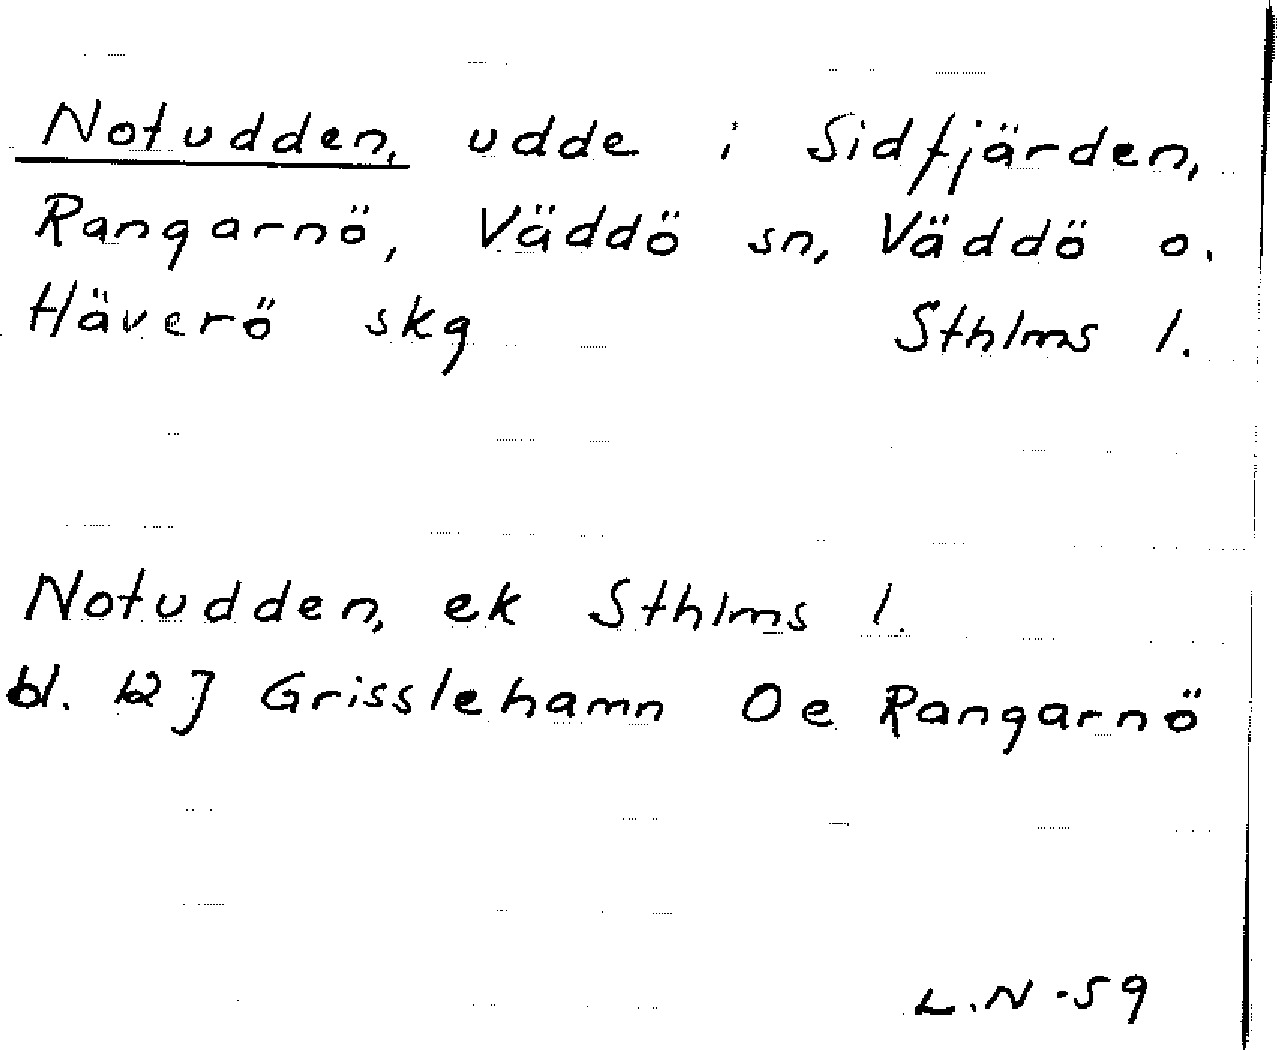 Notudden, udde i Sidfjärden,
Rangarnö, Väddö sn, Väddö o.
Häverö skg Sthlms l.
Notudden, ek Sthlms l.
bl. 12 J Grisslehamn Oe Rangarnö
L.N -59